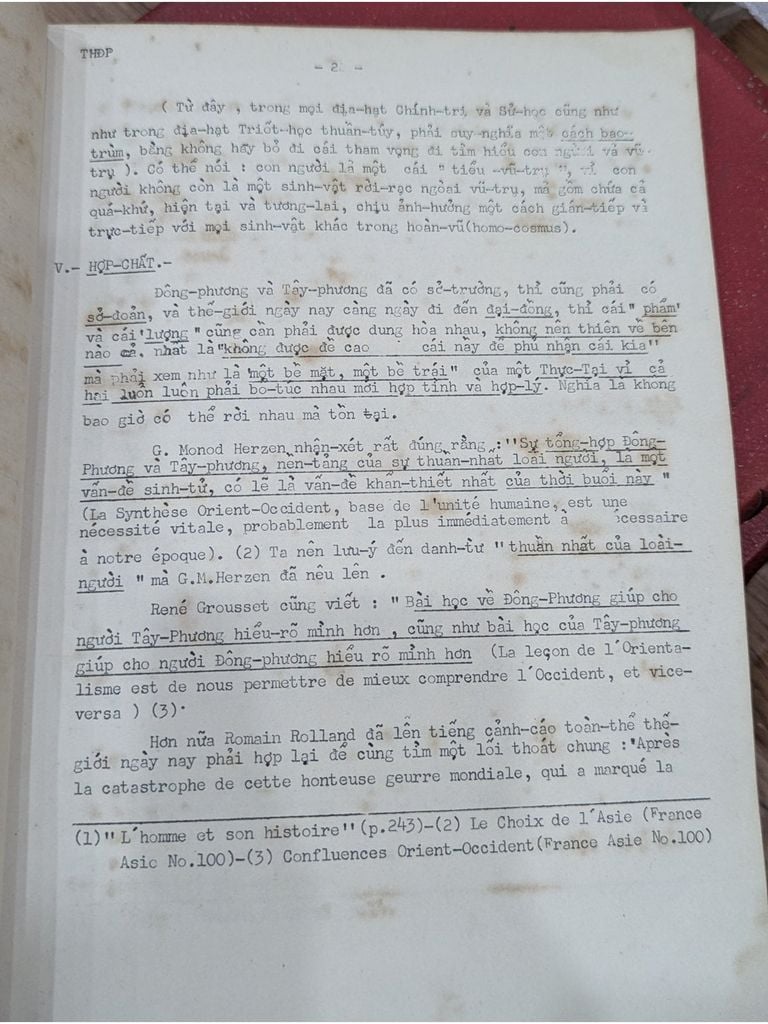 THĐP
- 2 -
( Từ đây , trong mọi địa-hạt Chính-trị và Sử-học cũng như
như trong địa-hạt Triết-học thuần-túy, phải suy-nghĩa một cách bao-
trùm, bằng không hãy bỏ đi cái tham vọng đi tìm hiểu con người và vũ-
trụ ). Có thể nói : con người là một cái " tiểu -vũ-trụ ", vì con
người không còn là một sinh-vật rời-rạc ngoài vũ-trụ, mà gồm chứa cả
quá-khứ, hiện tại và tương-lai, chịu ảnh-hưởng một cách gián-tiếp và
trực-tiếp với mọi sinh-vật khác trong hoàn-vũ(homo-cosmus).
V.- HỢP-CHẤT.-
Đông-phương và Tây-phương đã có sở-trường, thì cũng phải có
sở-đoản, và thế-giới ngày nay càng ngày đi đến đại-đồng, thì cái" phẩm"
và cái"lượng " cũng cần phải được dung hòa nhau, không nên thiên về bên
nào cả. nhất là "không được đề cao cái này để phủ nhận cái kia"
mà phải xem như là "một bề mặt, một bề trái" của một Thực-Tại vì cả
hai luôn luôn phải bổ-túc nhau mới hợp tình và hợp-lý. Nghĩa là không
bao giờ có thể rời nhau mà tồn tại.
G. Monod Herzen nhận-xét rất đúng rằng :"Sự tổng-hợp Đông-
Phương và Tây-phương, nền-tảng của sự thuần-nhất loài người, là một
vấn-đề sinh-tử, có lẽ là vấn-đề khẩn-thiết nhất của thời buổi này "
(La Synthèse Orient-Occident, base de l'unité humaine, est une
nécessité vitale, probablement la plus immédiatement à
à notre époque). (2) Ta nên lưu-ý đến danh-từ " thuần nhất của loài-
người " mà G.M.Herzen đã nêu lên .
René Grousset cũng viết : " Bài học về Đông-Phương giúp cho
người Tây-Phương hiểu-rõ mình hơn , cũng như bài học của Tây-phương
giúp cho người Đông-phương hiểu rõ mình hơn (La leçon de l'Orienta-
lisme est de nous permettre de mieux comprendre l'Occident, et vice-
versa ) (3).
Hơn nữa Romain Rolland đã lên tiếng cảnh-cáo toàn-thể thế-
giới ngày nay phải hợp lại để cùng tìm một lối thoát chung :"Après
la catastrophe de cette honteuse geurre mondiale, qui a marqué la
(1)" L'homme et son histoire" (p.243)-(2) Le Choix de l'Asie (France
Asie No.100)-(3) Confluences Orient-Occident(France Asie No.100)